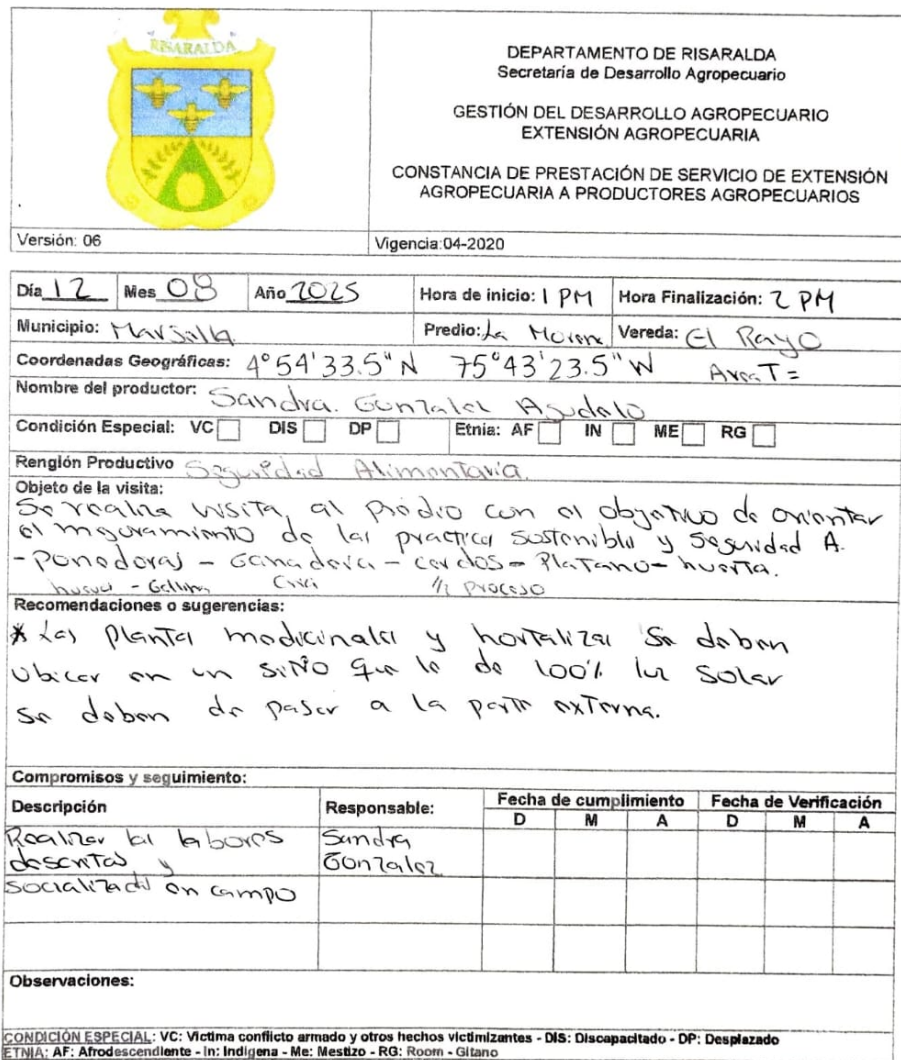 RISARALDA
DEPARTAMENTO DE RISARALDA
Secretaría de Desarrollo Agropecuario
GESTIÓN DEL DESARROLLO AGROPECUARIO
EXTENSIÓN AGROPECUARIA
CONSTANCIA DE PRESTACIÓN DE SERVICIO DE EXTENSIÓN
AGROPECUARIA A PRODUCTORES AGROPECUARIOS
Versión: 06 Vigencia:04-2020
Día 12 Mes 08 Año 2025 Hora de inicio: 1 PM Hora Finalización: 2 PM
Municipio: Marsella Predio: La Morena Vereda: El Rayo
Coordenadas Geográficas: 4°54'33.5" N 75°43'23.5" W Area T =
Nombre del productor: Sandra. Gonzalez Agudelo
Condición Especial: VC DIS DP Etnia: AF IN ME RG
Renglón Productivo Seguridad Alimentaria.
Objeto de la visita:
Se realiza visita al predio con el objetivo de orientar
el mejoramiento de las practica sostenible y Seguridad A.
- Ponedoras - Ganaderia - cerdos - Platano - huerta.
huevos - Gallina proceso
Recomendaciones o sugerencias:
* Las Planta medicinales y hortalizas Se deben
Ubicar en un sitio que le de 100% luz solar
Se deben de pasar a la parte externa.
Compromisos y seguimiento:
Descripción Responsable: Fecha de cumplimiento Fecha de Verificación
D M A D M A
Realizar las labores Sandra
descritas y Gonzalez
socializadas en campo
Observaciones:
CONDICIÓN ESPECIAL: VC: Victima conflicto armado y otros hechos victimizantes - DIS: Discapacitado - DP: Desplazado
ETNIA: AF: Afrodescendiente - In: Indigena - Me: Mestizo - RG: Room - Gitano